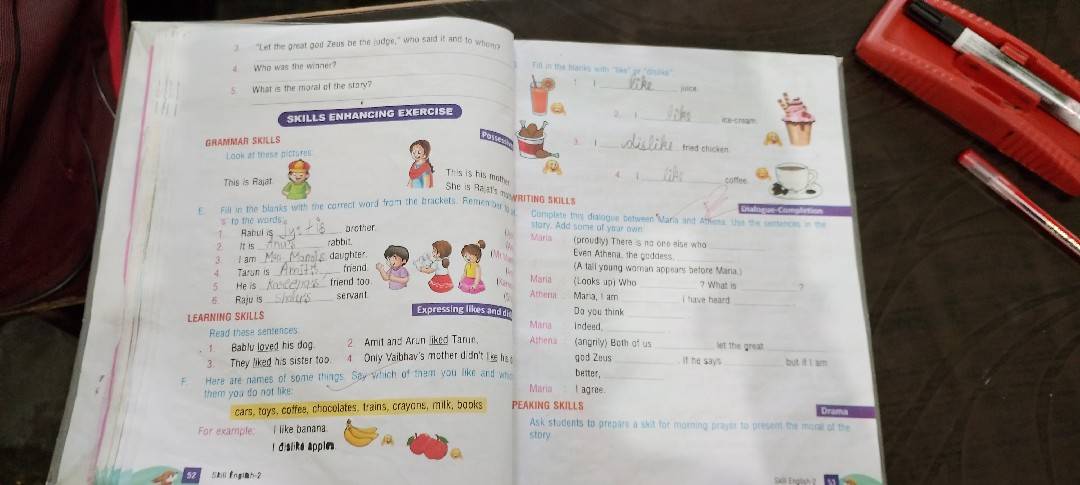 3. "Let the great god Zeus be the judge," who said it and to whom?
4. Who was the winner?
5. What is the moral of the story?
SKILLS ENHANCING EXERCISE
GRAMMAR SKILLS
Look at these pictures
This is Rajat.
This is his mother
She is Rajat's
E. Fill in the blanks with the correct word from the brackets. Remember to
's to the words.
1. Rahul is brother.
2. It is Anu's rabbit.
3. I am daughter.
4. Tarun is friend.
5. He is friend too.
6. Raju is servant.
LEARNING SKILLS
Expressing likes and
Read these sentences
1. Bablu loved his dog. 2. Amit and Arun liked Tarun.
3. They liked his sister too. 4. Only Vaibhav's mother didn't
F. Here are names of some things. Say which of them you like and
them you do not like:
cars, toys, coffee, chocolates, trains, crayons, milk, books
For example: I like banana.
I dislike apples.
52 Skill English-2
Fill in the blanks with "like" or "dislike"
1. I like juice.
2. I like ice-cream.
3. I dislike fried chicken.
4. I like coffee.
WRITING SKILLS
Dialogue-Completion
Complete this dialogue between Maria and Athena. Use the sentences in the
story. Add some of your own.
Maria : (proudly) There is no one else who
Even Athena, the goddess,
(A tall young woman appears before Maria.)
Maria : (Looks up) Who ? What is ?
Athena : Maria, I am I have heard
Do you think
Maria : Indeed,
Athena : (angrily) Both of us let the great
god Zeus . If he says but if I am
better,
Maria : I agree.
PEAKING SKILLS
Drama
Ask students to prepare a skit for morning prayer to present the moral of the
story
Skill English-2 53